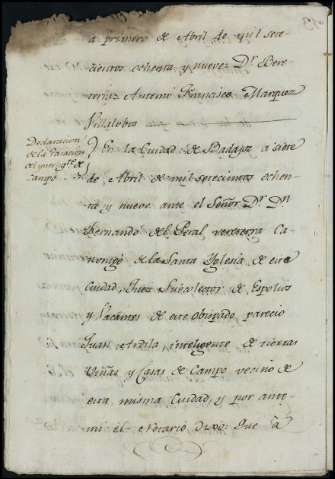 a primero de Abril de mil sete
cientos ochenta y nueve=
Antonio Francisco Marquez
Villalobos
Declaracion
de la
Campo
En la Ciudad de Badajoz a siete
de Abril de mil setecientos ochen
ta y nueve ante el Señor Dn. Dn
Fernando del Peral, Ca
nonigo de la Santa Iglesia de esta
Ciudad, Juez Subcolector de Espolios
y Vacantes de este Obispado, parecio
Juan Ardila, inteligente de tierras
Viñas y Casas de Campo vecino de
esta misma Ciudad, y por ante
mi el Notario Dixo: Que a